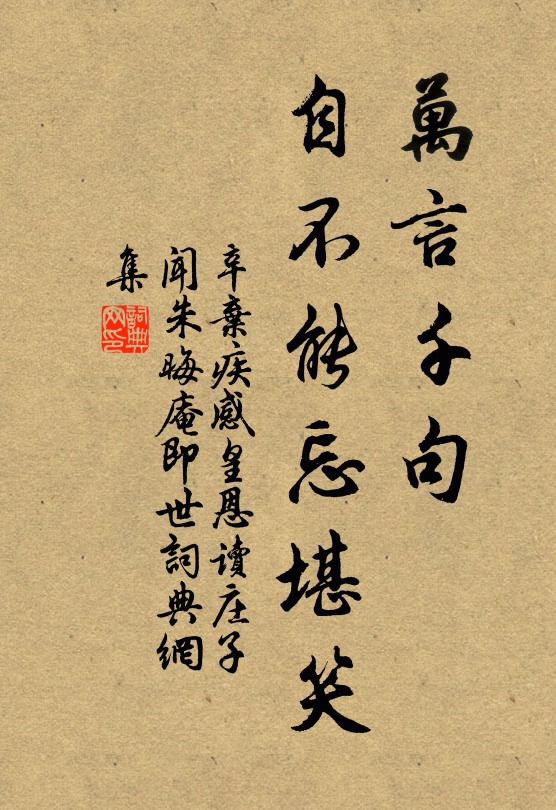 萬言千句
自不能忘堪笑
辛棄疾感皇恩讀庄子
聞朱晦庵即世詞典網
集
詞典
网印